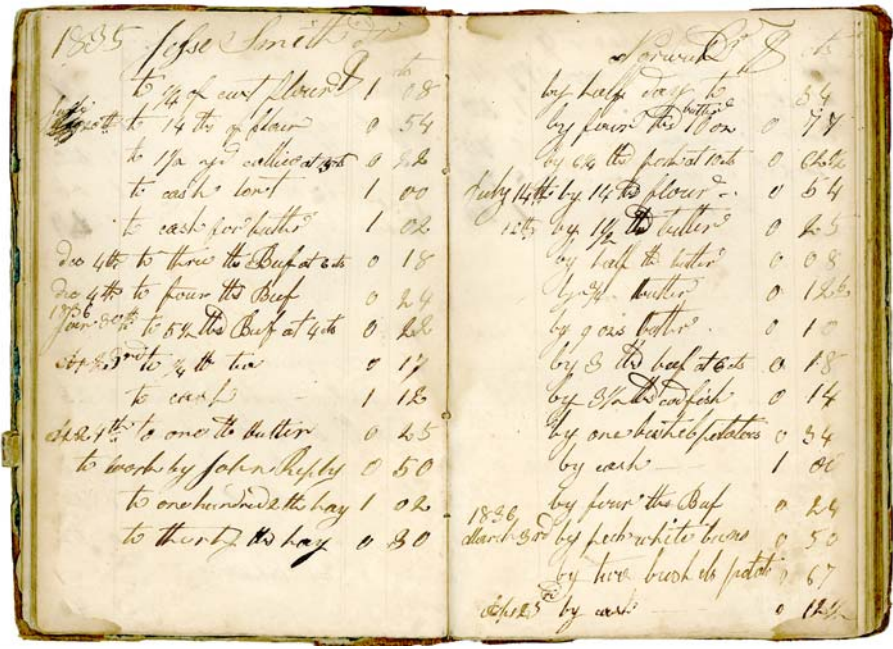 1835 Jesse Smith Dr
$ cts
to 1/4 of cwt flour 1 08
to 14 lbs of flour 0 54
to 1 1/2 yd callico at cts 0 22
to cash lent 1 00
to cash for buttr 1 02
dec 4th to three lbs Buf at 6 cts 0 18
dec 4th to four lbs Buf 0 24
1836
Jan 30th to 5 1/2 lbs Buf at 4 cts 0 22
3rd to 1/4 lb tea 0 17
to cash 1 12
24th to one lb butter 0 25
to work by John Riply 0 50
to one hundred lb hay 1 02
to thirty lbs hay 0 30
Norwich Cr $ cts
by half day to 34
by four lbs 10 oz buttr 0 77
by 6 1/4 lbs pork at 10 cts 0 62 1/2
July 14th by 14 lbs flour 0 54
by 1 1/2 lbs butter 0 25
by half lb butter 0 08
by 3/4 butter 0 12
by 9 ozs buttr 0 10
by 3 lbs beef at 6 cts 0 18
by 3 1/2 lbs codfish 0 14
by one bushel potatoes 0 34
by cash 1 00
by four lbs Buf 0 24
1836
March 3rd by peck white beans 0 50
by two bushels potato 0 67
by cash 0 12 1/2